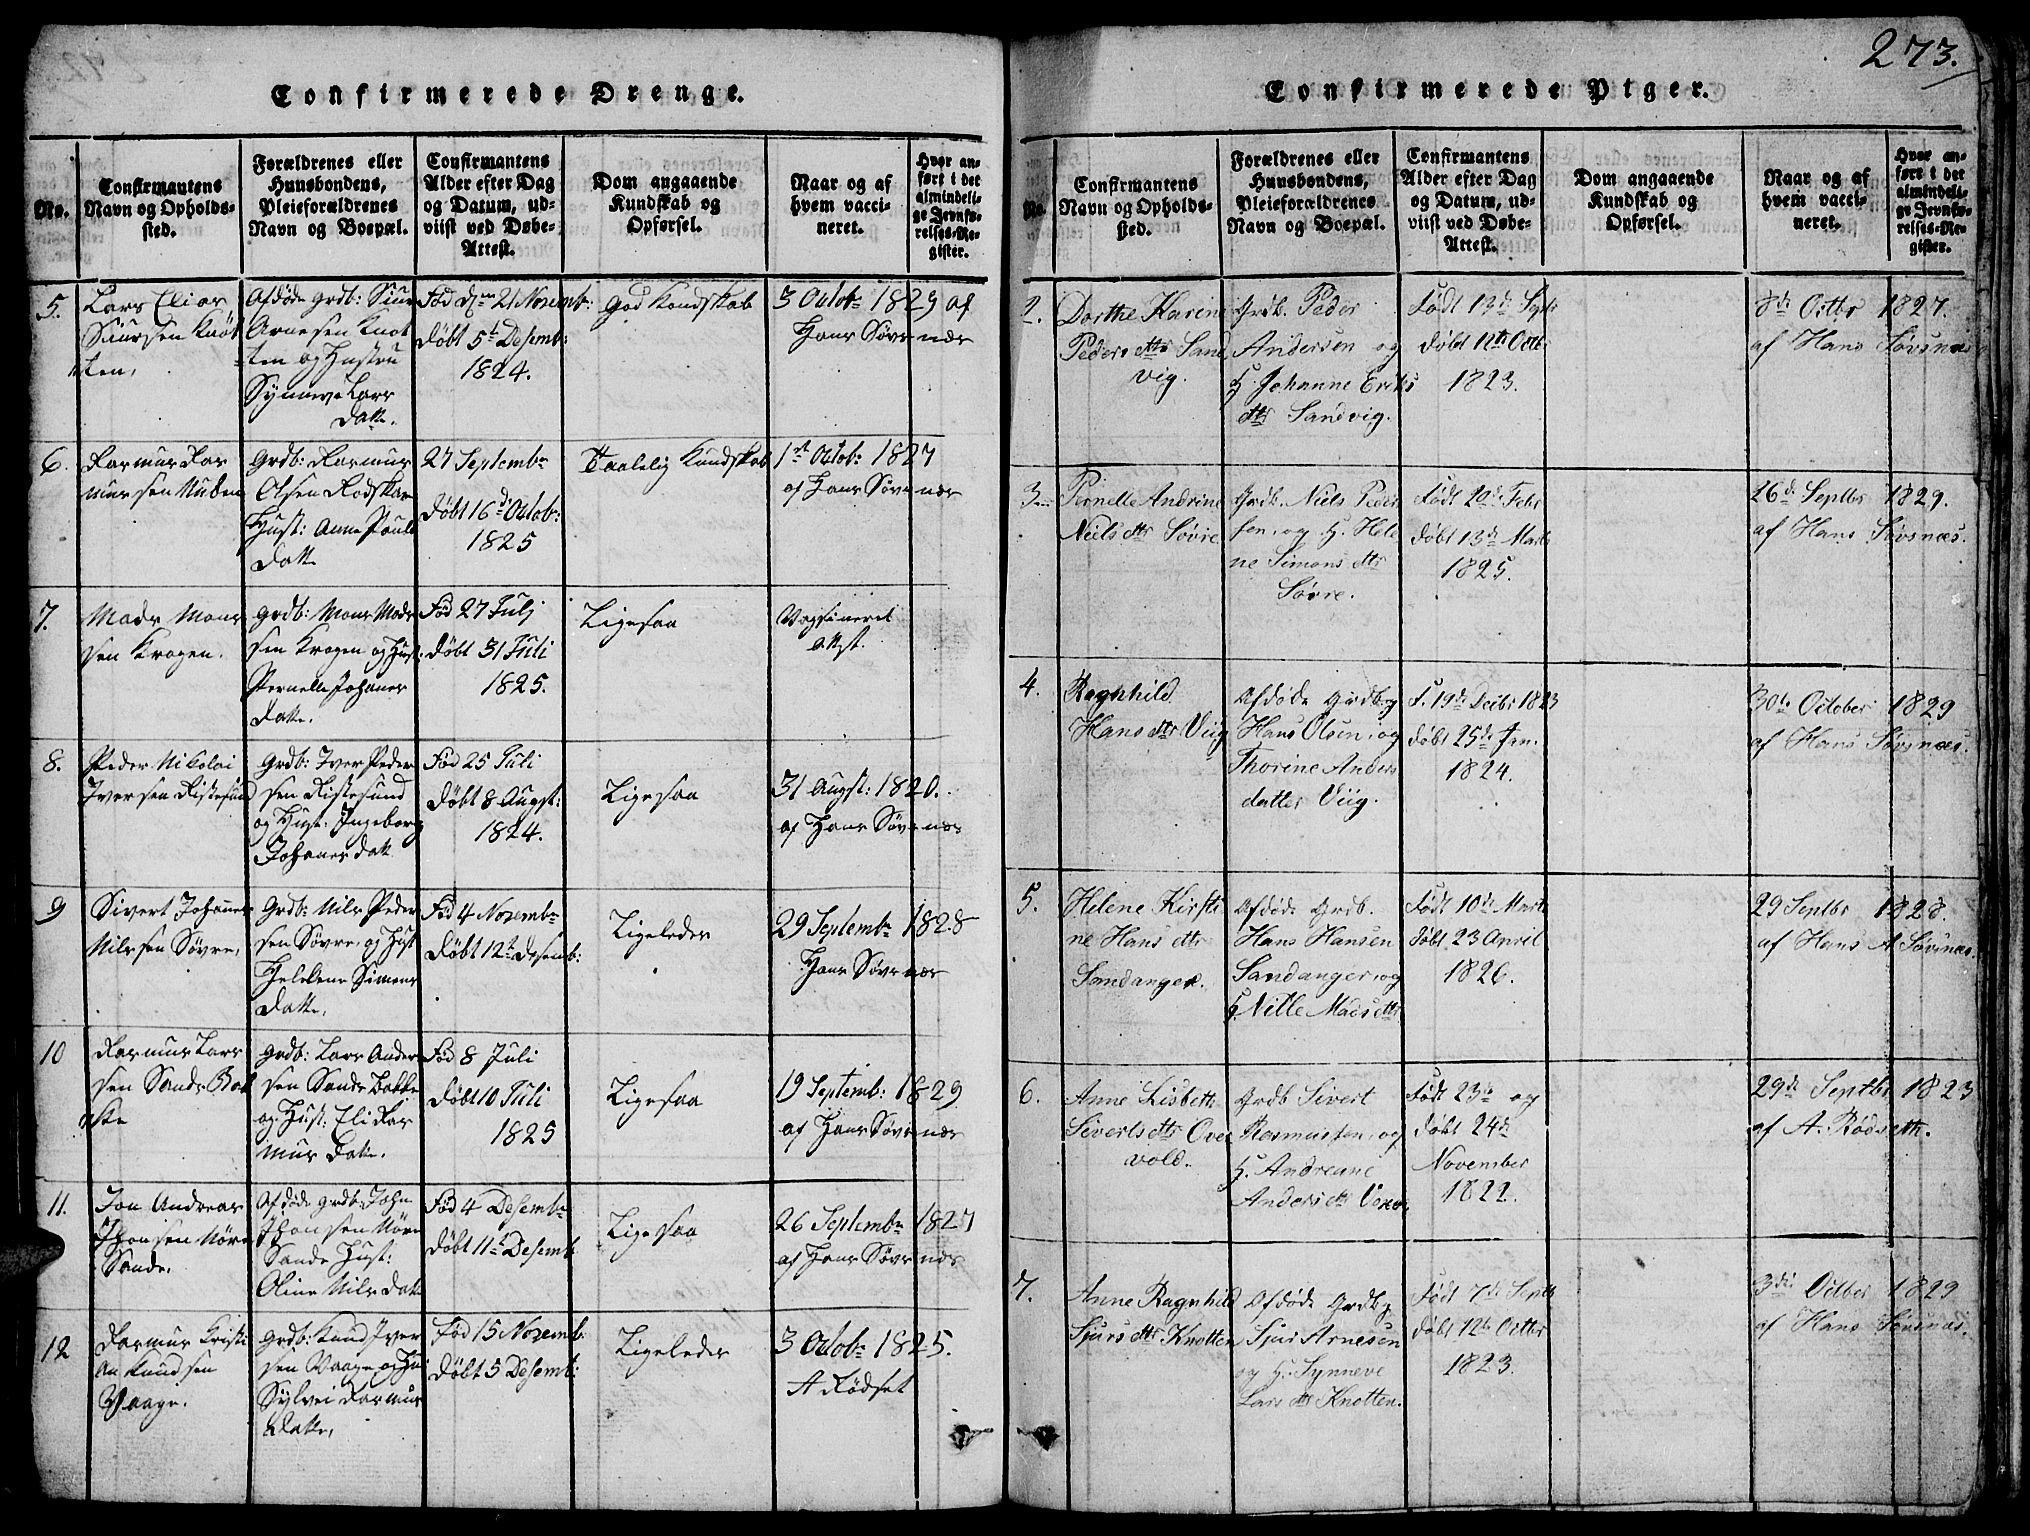 273.
Confirmerede Drenge.
No.
Confirmantens
Navn og Opholds-
sted.
Forældrenes eller
Huusbondens,
Pleieforældrenes
Navn og Boepæl.
Confirmantens
Alder efter Dag
og Datum, ud-
viist ved Døbe-
Attest.
Dom angaaende
Kundskab og
Opførsel.
Naar og af
hvem vacci-
neret.
Hvor an-
ført i det
almindeli-
ge Jevnfø-
relses-Re-
gister.
5.
Lars Elias
Siursen Knöt
ten,
Afdöde Grdb: Siur
Arnesen Knot
ten og Hustru
Synneve Lars
Datt.
Föd d. 21 Novemb:
Döbt 5t Desemb:
1824.
God Kundskab
3 Octob: 1829 af
Hans Sövsnæs
6.
Rasmus Ras
mussen
Grdb: Rasmus
Olsen
Hust: Anne Pouls
Datt
27 Septembr
Döbt 16d Octob:
1825
Taalelig Kundskab
1st Octob: 1827
af Hans Sövsnæs
7.
Mads Mons
sen Kragen.
Grdb: Mons Mads
sen Kragen og Hust.
Pernelle Johanes
Datt.
Föd 27 Julj
Döbt 31 Juli
1825.
Ligesaa
Vagsineret
Attst.
8.
Peder Nikolai
Iversen Ristesund
Grdb: Iver Peder
sen Ristesund
og Hust. Ingeborg
Johanes datt
Föd 25 Juli
Döbt 8 Augst:
1824.
Ligesaa
31 Augst: 1820.
af Hans Sövsnæs
9
Sivert Johannes
Nilssen Sövre,
Grdb: Nils Peder
sen Sövre, og Hust
Helelene Simons
Datt,
Föd 4 Novembr
Döbt 12t Desemb:
Ligeledes
29 Septembr 1828
Hans Sövsnæs
10
Rasmus Lars
sen Sande Bak
ke
Grdb: Lars Anders
sen Sande Bakke
og Hust: Eli Ras
mus Datt.
Föd 8 Juli
Döbt 10 Juli
1825
Ligesaa
19 Septemb: 1829
af Hans Sövsnæs
11.
Jon Andreas
Jhonsen Nöre
Sande.
Afdöde Grdb: John
Jhonsen Nöre
Sande Hust:
Oline Nils Datt
Föd 4 Desembr
Döbt 11t Desemb
Ligesaa
26 Septembr 1827
af Hans Sövsnæs
12
Rasmus Kristi
an Knudsen
Vaage.
Grdb: Knud Iver
sen Vaage og Hu
Sylvei Rasmus
Datt,
Föd 15 Novemb:
Döbt 5 Desemb:
Ligeledes
3 Octobr 1825.
A Rödset
Confirmerede Piger.
No.
Confirmantens
Navn og Opholds-
sted.
Forældrenes eller
Huusbondens,
Pleieforældrenes
Navn og Boepæl.
Confirmantens
Alder efter Dag
og Datum, ud-
viist ved Døbe-
Attest.
Dom angaaende
Kundskab og
Opførsel.
Naar og af
hvem vacci-
neret.
Hvor an-
ført i det
almindeli-
ge Jevnfø-
relses-Re-
gister.
2.
Dorthe Karine
Peders dttr Sand
vig.
Grdb. Peder
Andersen og
H. Johanne Eriks
dttr Sandvig.
Födt 13d Septr
Döbt 12te Octbr
1823.
8de Octbr 1827.
af Hans Søvsnæs
3.
Pernelle Andrine
Niels dttr Søvre
Grdb. Niels Peder
sen, og H. Hele
ne Simons dttr
Søvre.
Födt 20de Febr
Döbt 13de Marts
1825.
26de Septbr 1829.
af Hans Søvsnæs.
4.
Ragnhild
Hans dttr Viig
Afdöde Grdbg
Hans Olsen, og
Thorine Anders
datter Viig.
F. 19de Decbr 1823
Döbt 25de Jan.
1824.
30te October 1829
af Hans Søvsnæs.
5.
Helene Kirsti
ne Hans dttr
Sandanger.
Afdöde Grdb.
Hans Hansen
Sandanger, og
H. Nille Mads dttr
Födt 10de Marts
Döbt 23 April
1826.
29 Septbr 1828.
af Hans A Søvsnæs.
6.
Anne Lisbeth
Siverts dttr Over
vold.
Grdb Sivert
Rasmussen, og
H. Andreane
Anders dttr
Födt 23de og
Döbt 24de
November
1822.
29de Septbr 1823
af A. Rødseth.
7.
Anne Ragnhild
Sjurs dttr Knotten
Afdöde Grdbg
Sjur Arnesen
og H. Synneve
Lars dttr Knotten.
Födt 7de Septb
Döbt 12te Octbr
1823.
3die Octber 1829
af Hans Søvsnæs.